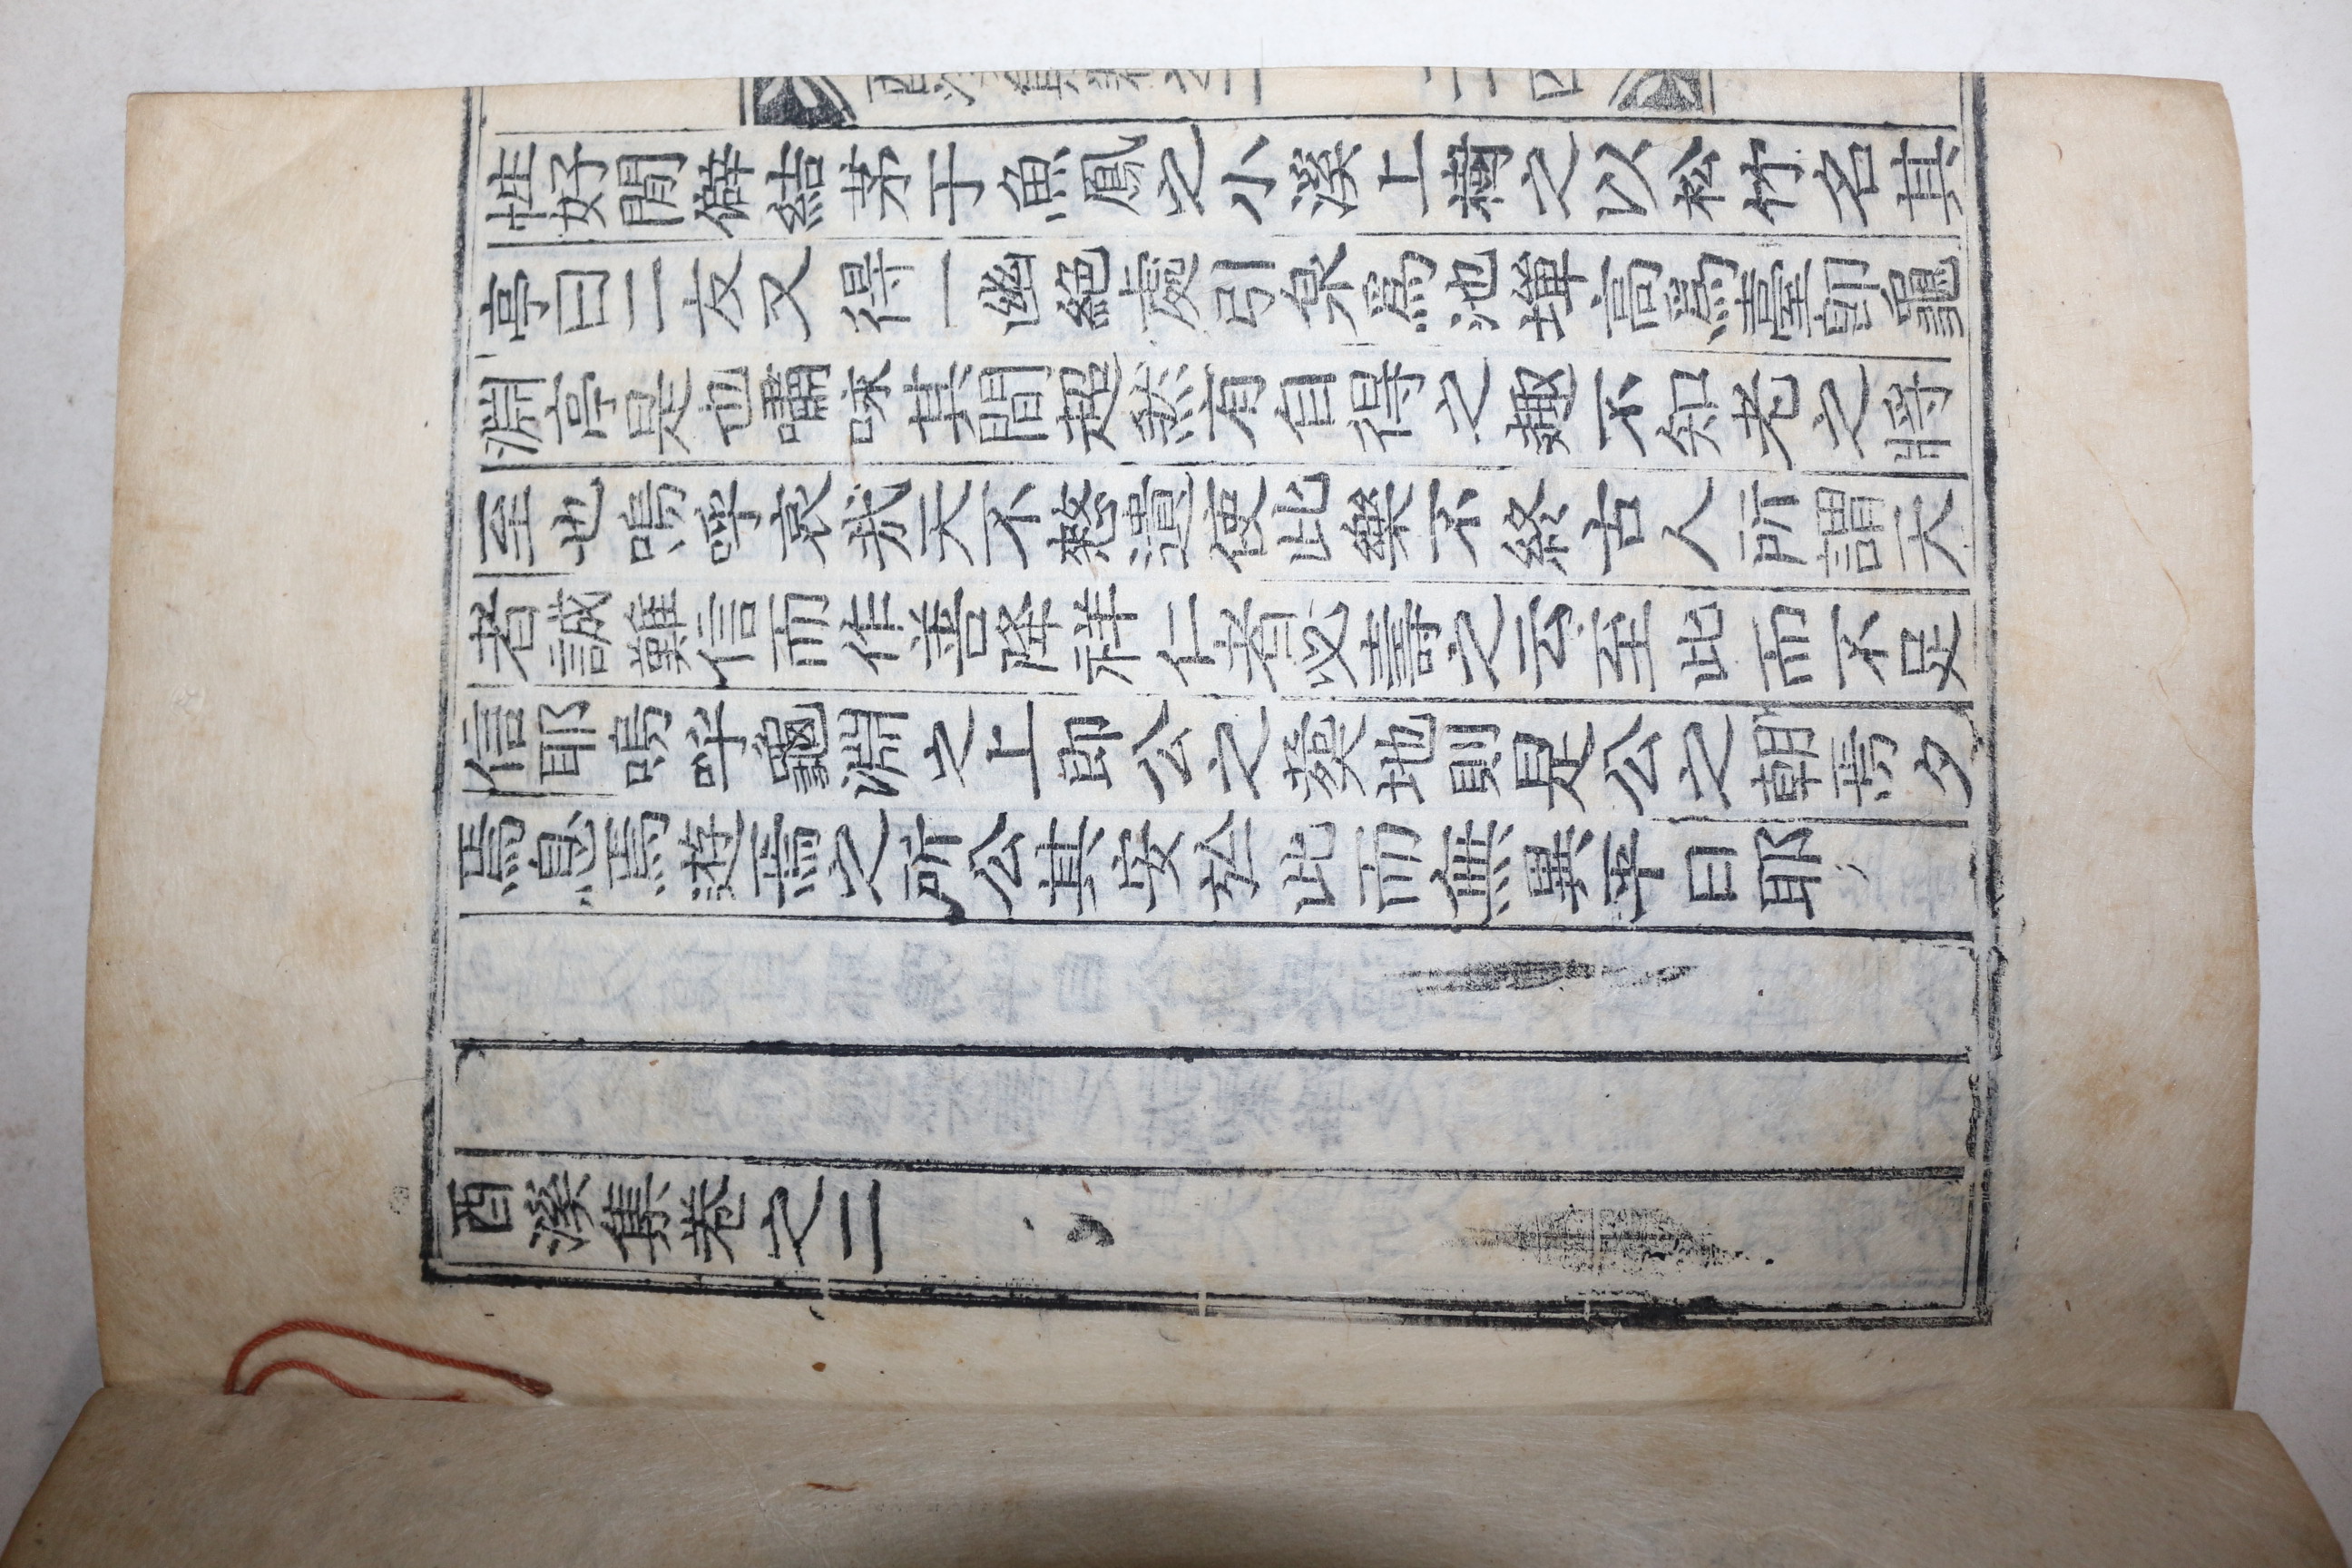 性好閒僻結茅于魚鳳之小溪上蒔之以松竹名其
亭曰二友又得一幽絶處引泉爲池增高爲臺卽龜
淵亭是也嘯咏其間超然有自得之趣不知老之將
至也嗚呼哀哉天不憖遺使此樂不終古人所謂天
者誠難信而作善降祥仁者必壽之云至此而不足
信耶嗚呼龜淵之上卽公之葬地則是公之朝焉夕
焉息焉遊焉之所公其安於此而無異平日耶
酉溪集卷之二